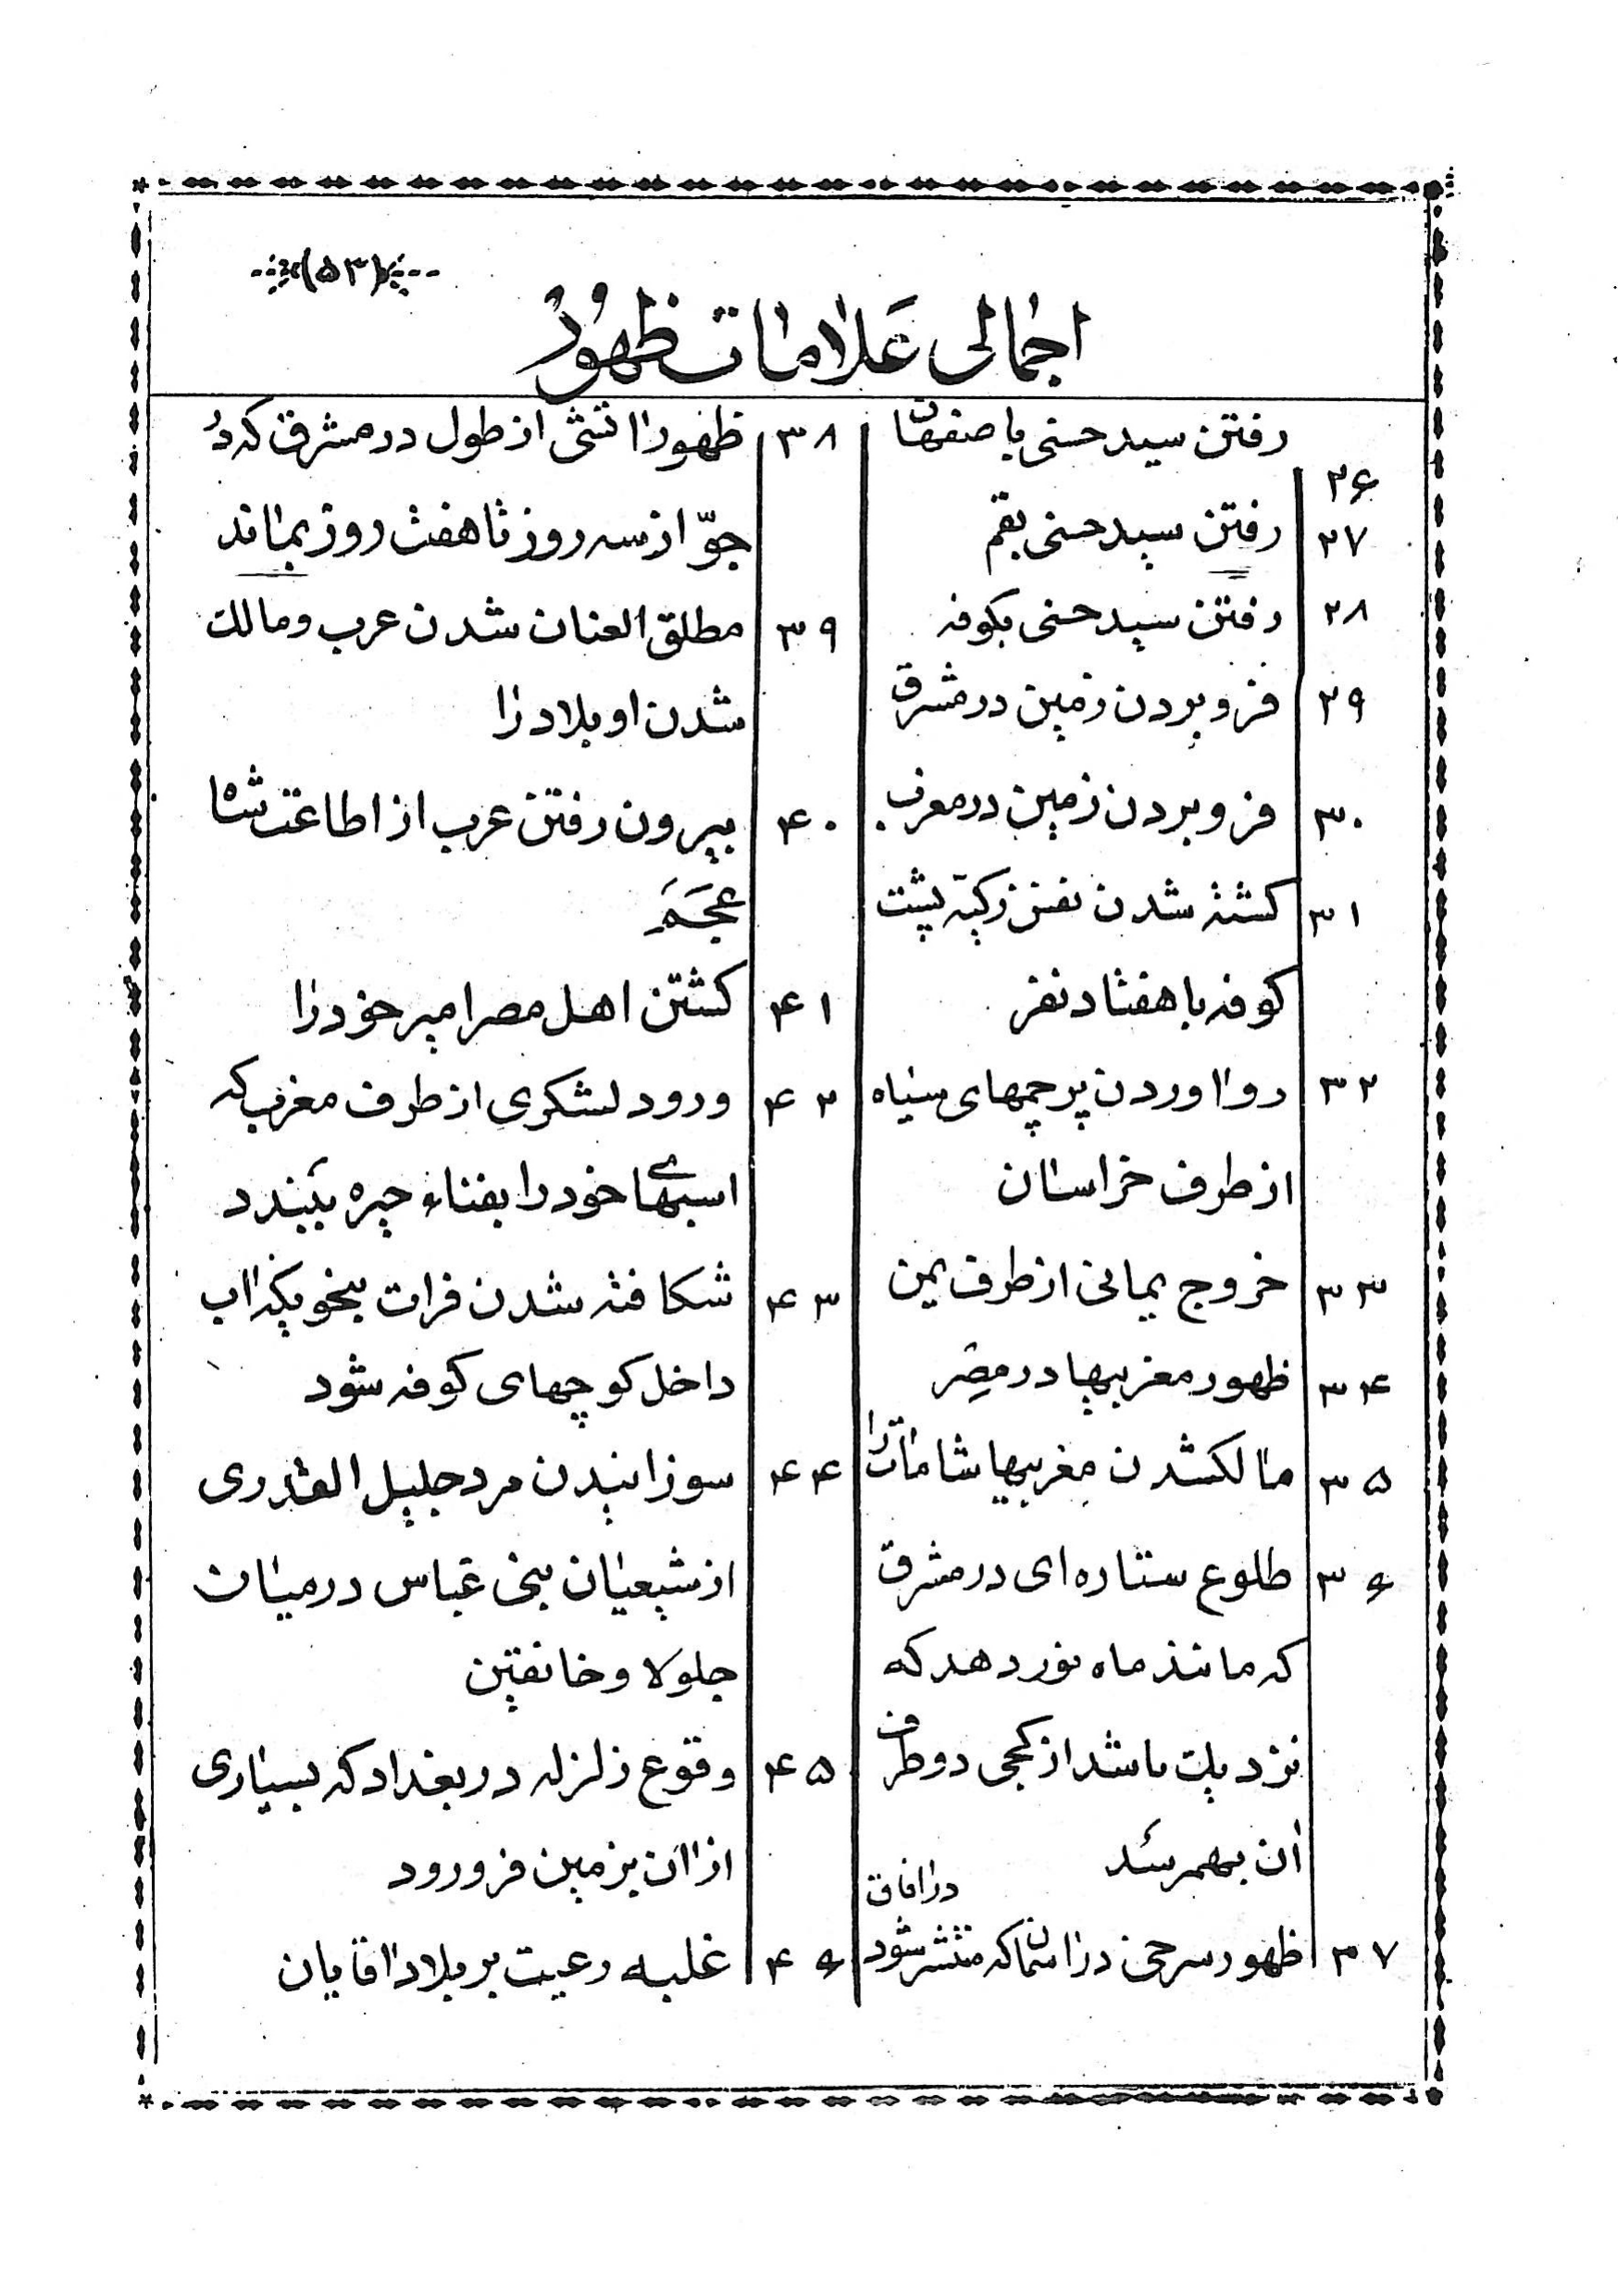 (۵۳)
اجمالی عَلامات ظهُورُ
۲۶ رفتن سید حسنی باصفهان
۲۷ رفتن سید حسنی بقم
۲۸ رفتن سید حسنی بکوفه
۲۹ فرو بردن زمین در مشرق
۳۰ فرو بردن زمین در مغرب
۳۱ کشته شدن نفس زکیّه پشت
کوفه با هفتاد نفر
۳۲ رو اوردن پرچمهای سیاه
از طرف خراسان
۳۳ خروج یمانی از طرف یمن
۳۴ ظهور مغربیها در مصر
۳۵ مالکشدن مغربیها شاماترا
۳۶ طلوع ستاره ای در مشرق
که مانند ماه نور دهد که
نزدیک باشد از کجی دو طرف
ان بهمرسد
۳۷ ظهور سرخی در اسمان که منتشر شود در افاق
۳۸ ظهور اتشی از طول در مشرق که در
جوّ از سه روز تا هفت روز بماند
۳۹ مطلق العنان شدن عرب و مالک
شدن او بلاد را
۴۰ بیرون رفتن عرب از اطاعت شاه
عجَمَ
۴۱ کشتن اهل مصر امیر خود را
۴۲ ورود لشکری از طرف مغرب که
اسبهای خود را بفناء حیره ببندد
۴۳ شکافته شدن فرات بنحویکه اب
داخل کوچهای کوفه شود
۴۴ سوزانیدن مرد جلیل القدری
از شیعیان بنی عباس در میان
جلولا و خانقین
۴۵ وقوع زلزله در بغداد که بسیاری
از ان بزمین فرو رود
۴۶ غلبه رعیت بر بلاد اقایان